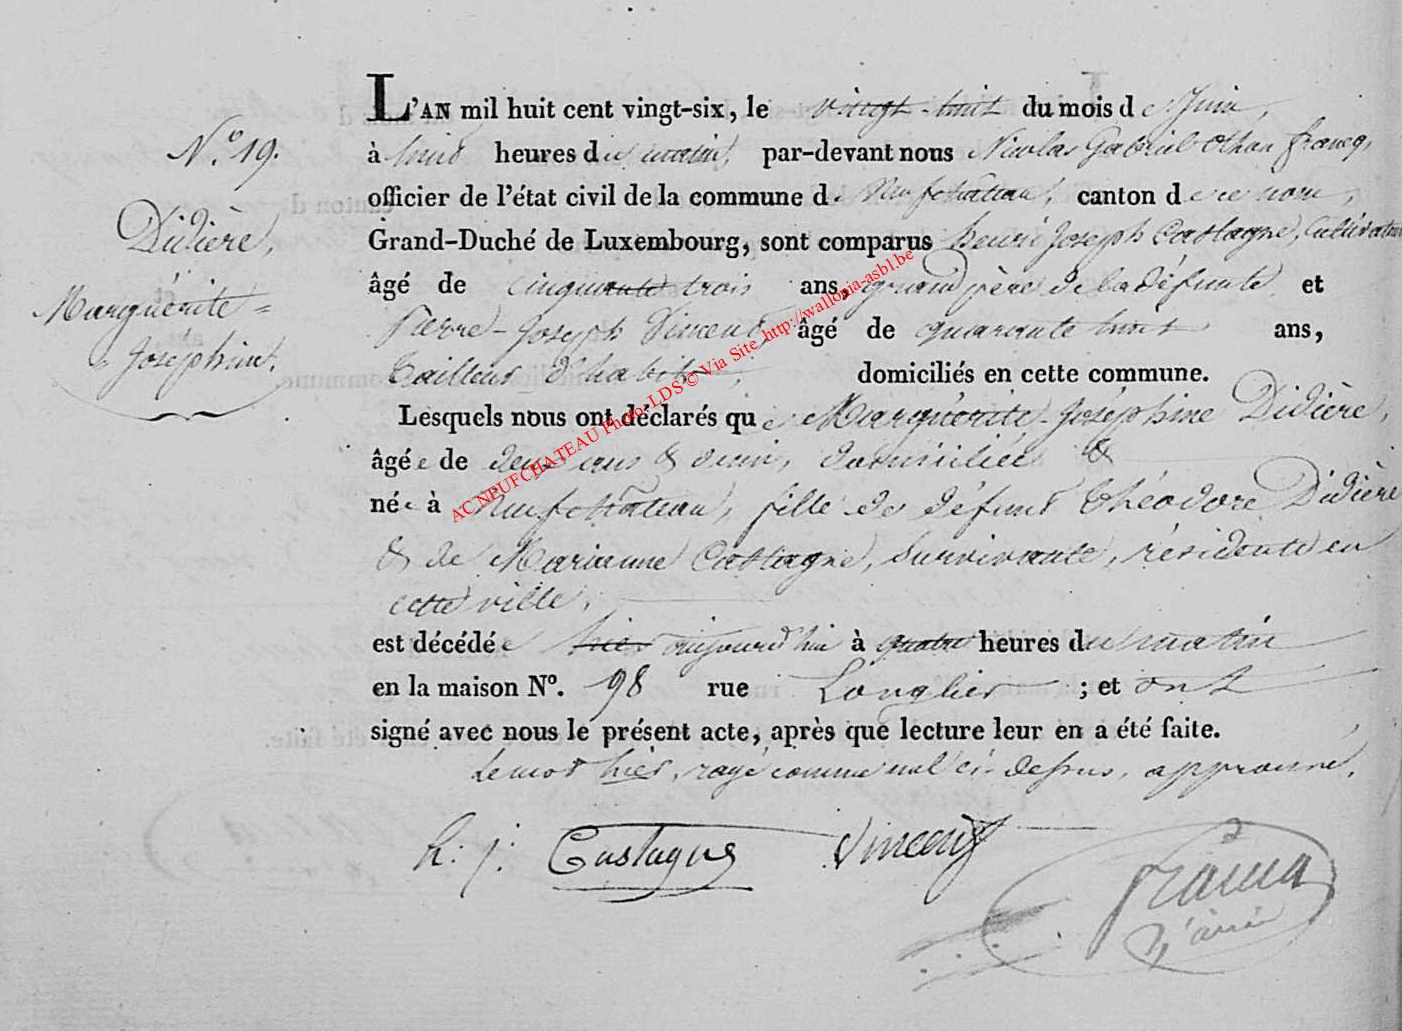 L'AN mil huit cent vingt-six, le vingt-huit du mois de Juin,
N.º 19.
à huit heures du matin, par-devant nous Nicolas Gabriel Francq,
officier de l'état civil de la commune de Neufchâteau, canton de ce nom,
Didière,
Grand-Duché de Luxembourg, sont comparus henri Joseph Castagne, Cultivateur
âgé de cinquante trois ans, grand père de la défunte et
Marguérite =
Pierre-Joseph Vincent, âgé de quarante huit ans,
Joséphine.
tailleur d'habits, domiciliés en cette commune.
Lesquels nous ont déclarés que Marguérite-Joséphine Didière,
âgée de deux ans & demi, domiciliée &
née à Neufchâteau, fille de défunt Théodore Didière
& de Marianne Castagne, Survivante, résidente en
cette ville,
est décédée hier aujourd'hui à quatre heures du matin
en la maison Nº. 98 rue Longlier ; et ont
signé avec nous le présent acte, après que lecture leur en a été faite.
Le mot hier, rayé comme nul ci-dessus, approuvé.
h: j: Castagne Vincent
AC NEUFCHATEAU Photo: LDS © Via Site http://wallonia-asbl.be